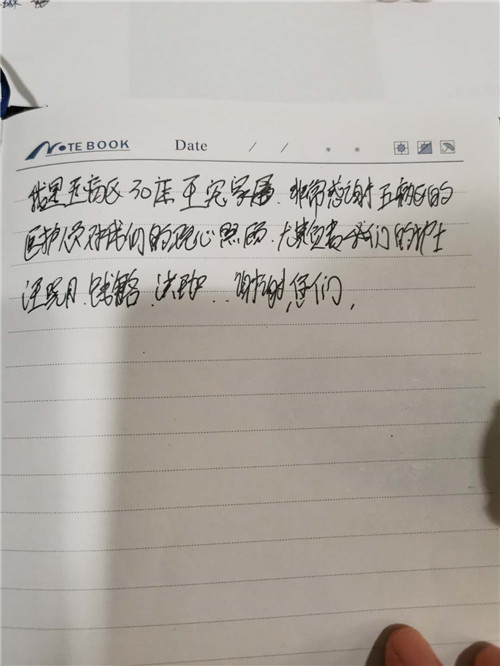 NOTEBOOK Date / /
我是五病区30床王 家属.非常感谢五病区的
医护人员对我们的 心照顾.尤其负责我们的护士
汪 月.钱 . ..谢谢您们,